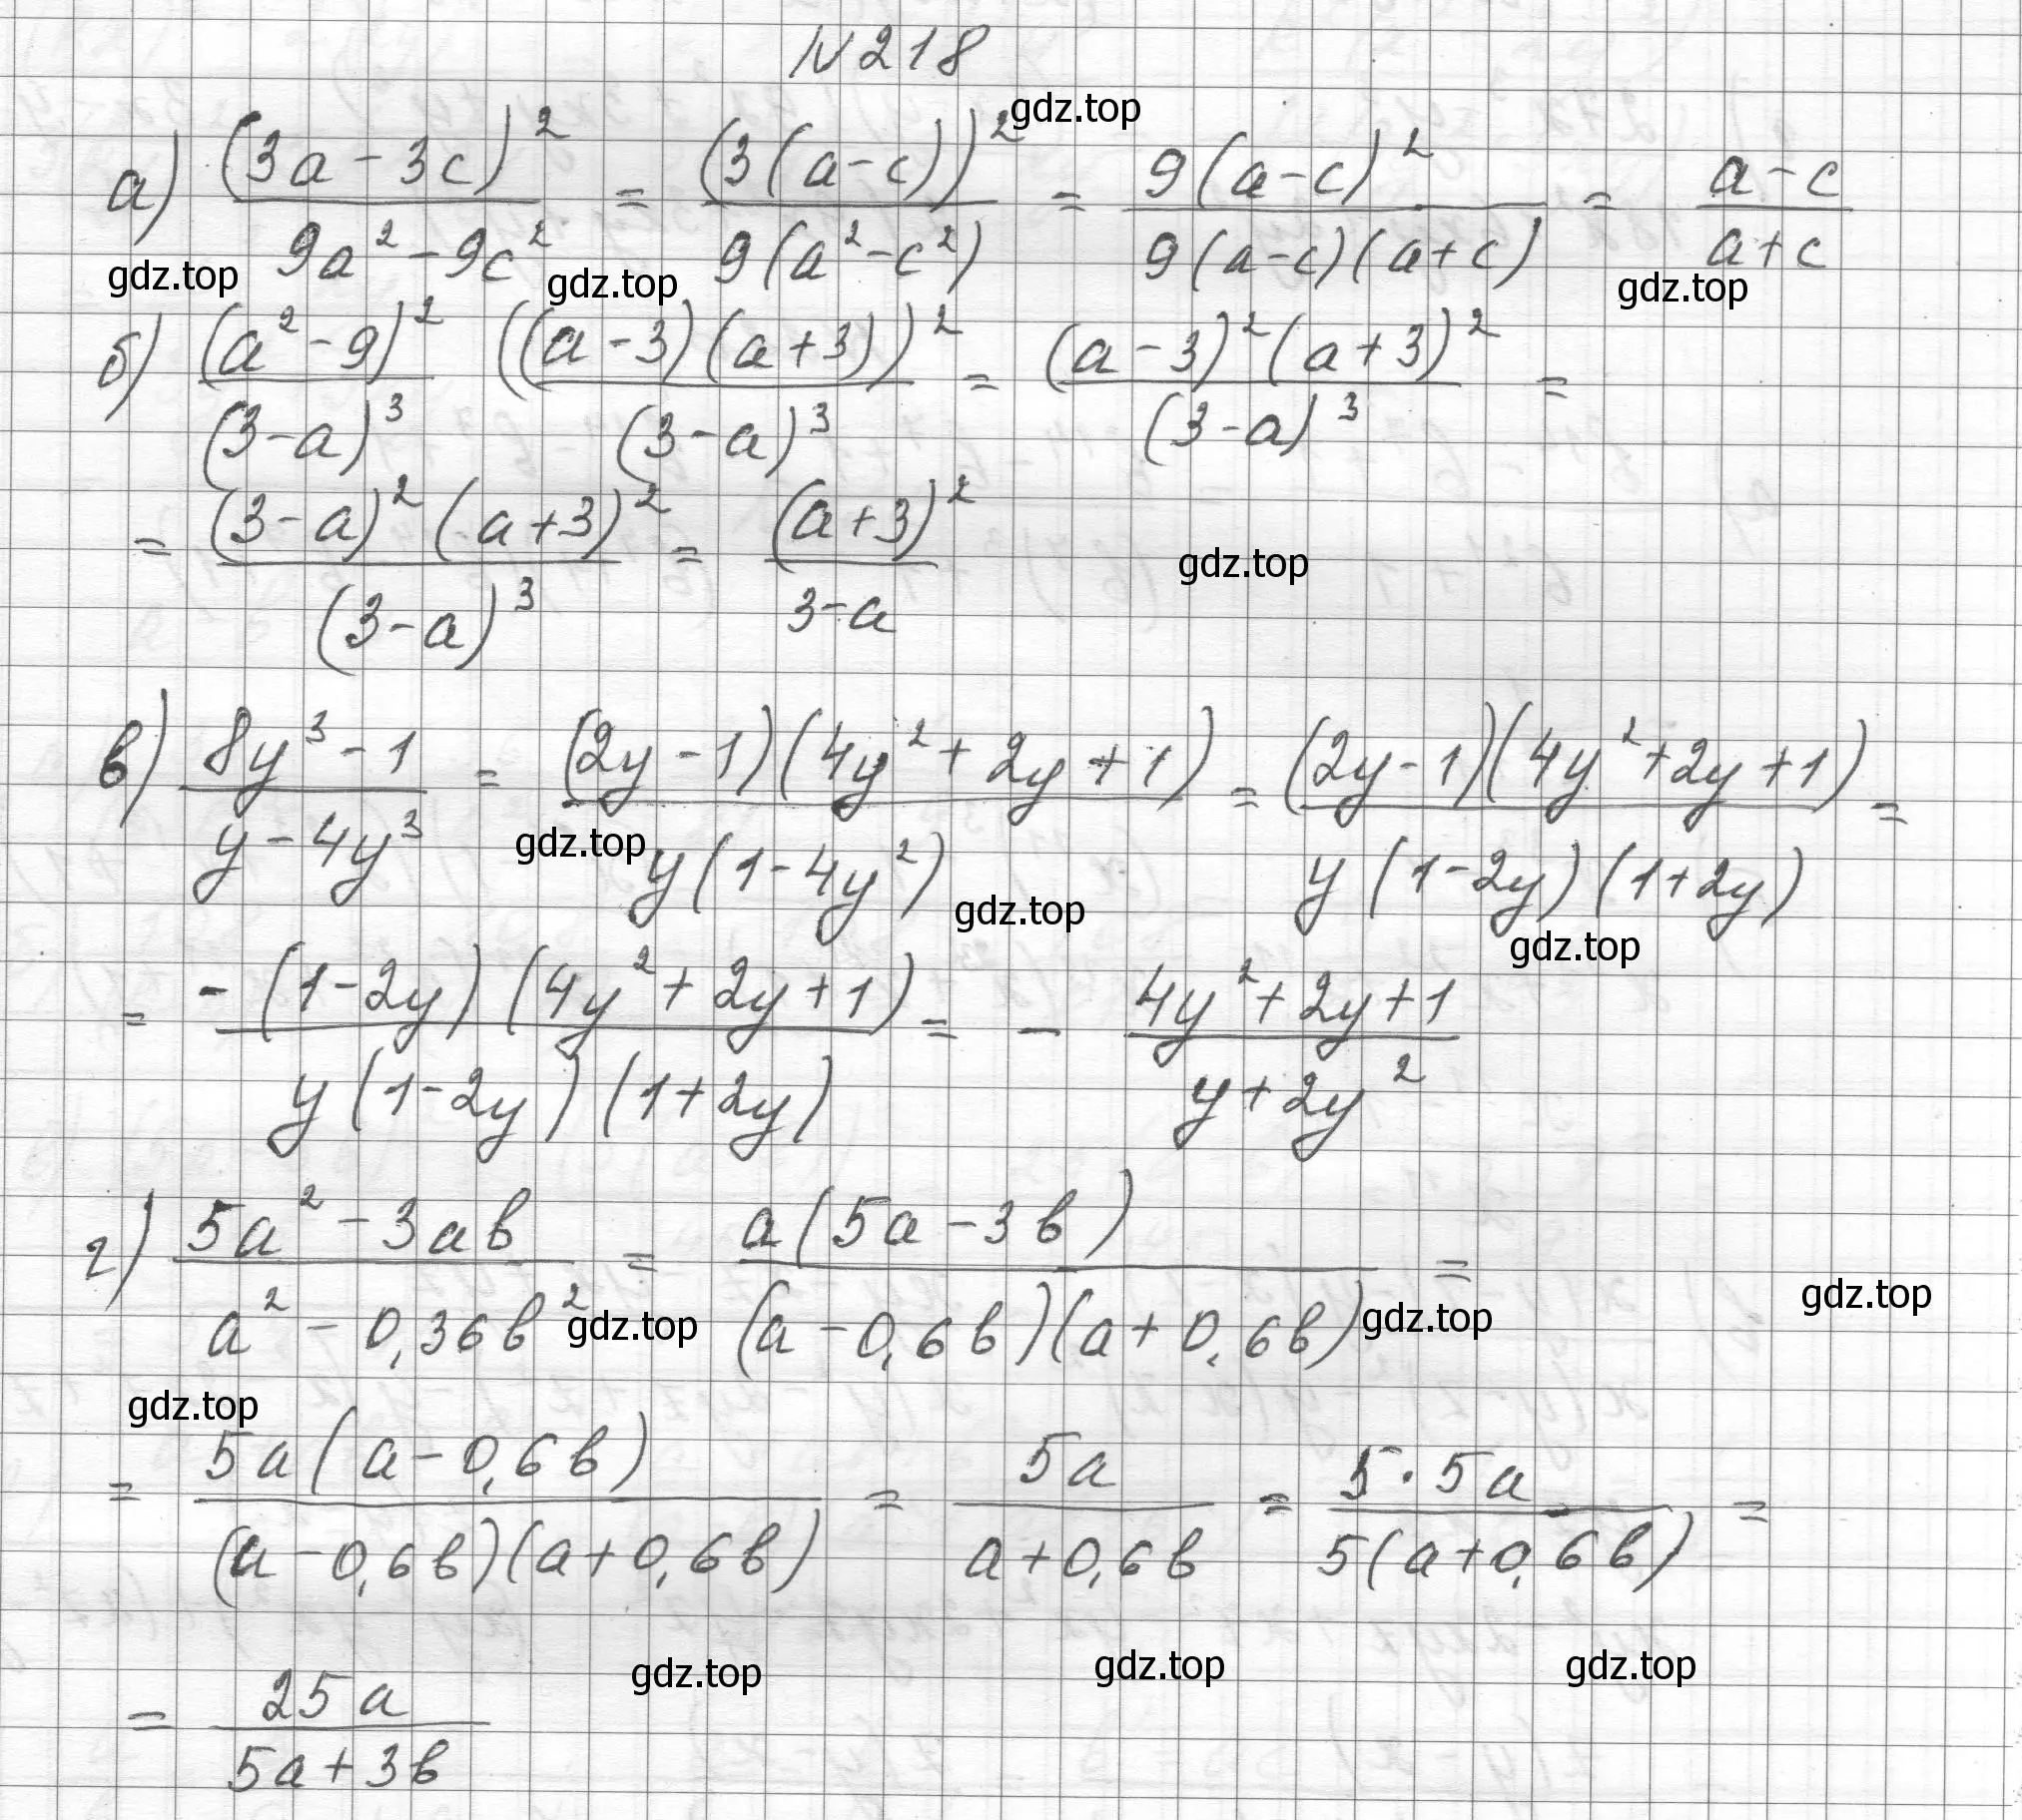 N 218
gdz.top
а) (3a-3c)²/(9a²-9c²) = (3(a-c))²/(9(a²-c²)) = 9(a-c)²/(9(a-c)(a+c)) = (a-c)/(a+c)
gdz.top gdz.top gdz.top
б) (a²-9)²/(3-a)³ ((a-3)(a+3))²/(3-a)³ = (a-3)²(a+3)²/(3-a)³ =
= (3-a)²(a+3)²/(3-a)³ = (a+3)²/(3-a)
gdz.top
в) (8y³-1)/(y-4y³) = (2y-1)(4y²+2y+1)/(y(1-4y²)) = (2y-1)(4y²+2y+1)/(y(1-2y)(1+2y)) =
gdz.top gdz.top gdz.top
= -(1-2y)(4y²+2y+1)/(y(1-2y)(1+2y)) = - (4y²+2y+1)/(y+2y²)
г) (5a²-3ab)/(a²-0,36b²) = a(5a-3b)/((a-0,6b)(a+0,6b)) =
gdz.top gdz.top gdz.top
gdz.top
= 5a(a-0,6b)/((a-0,6b)(a+0,6b)) = 5a/(a+0,6b) = 5·5a/(5(a+0,6b)) =
gdz.top gdz.top gdz.top
= 25a/(5a+3b)